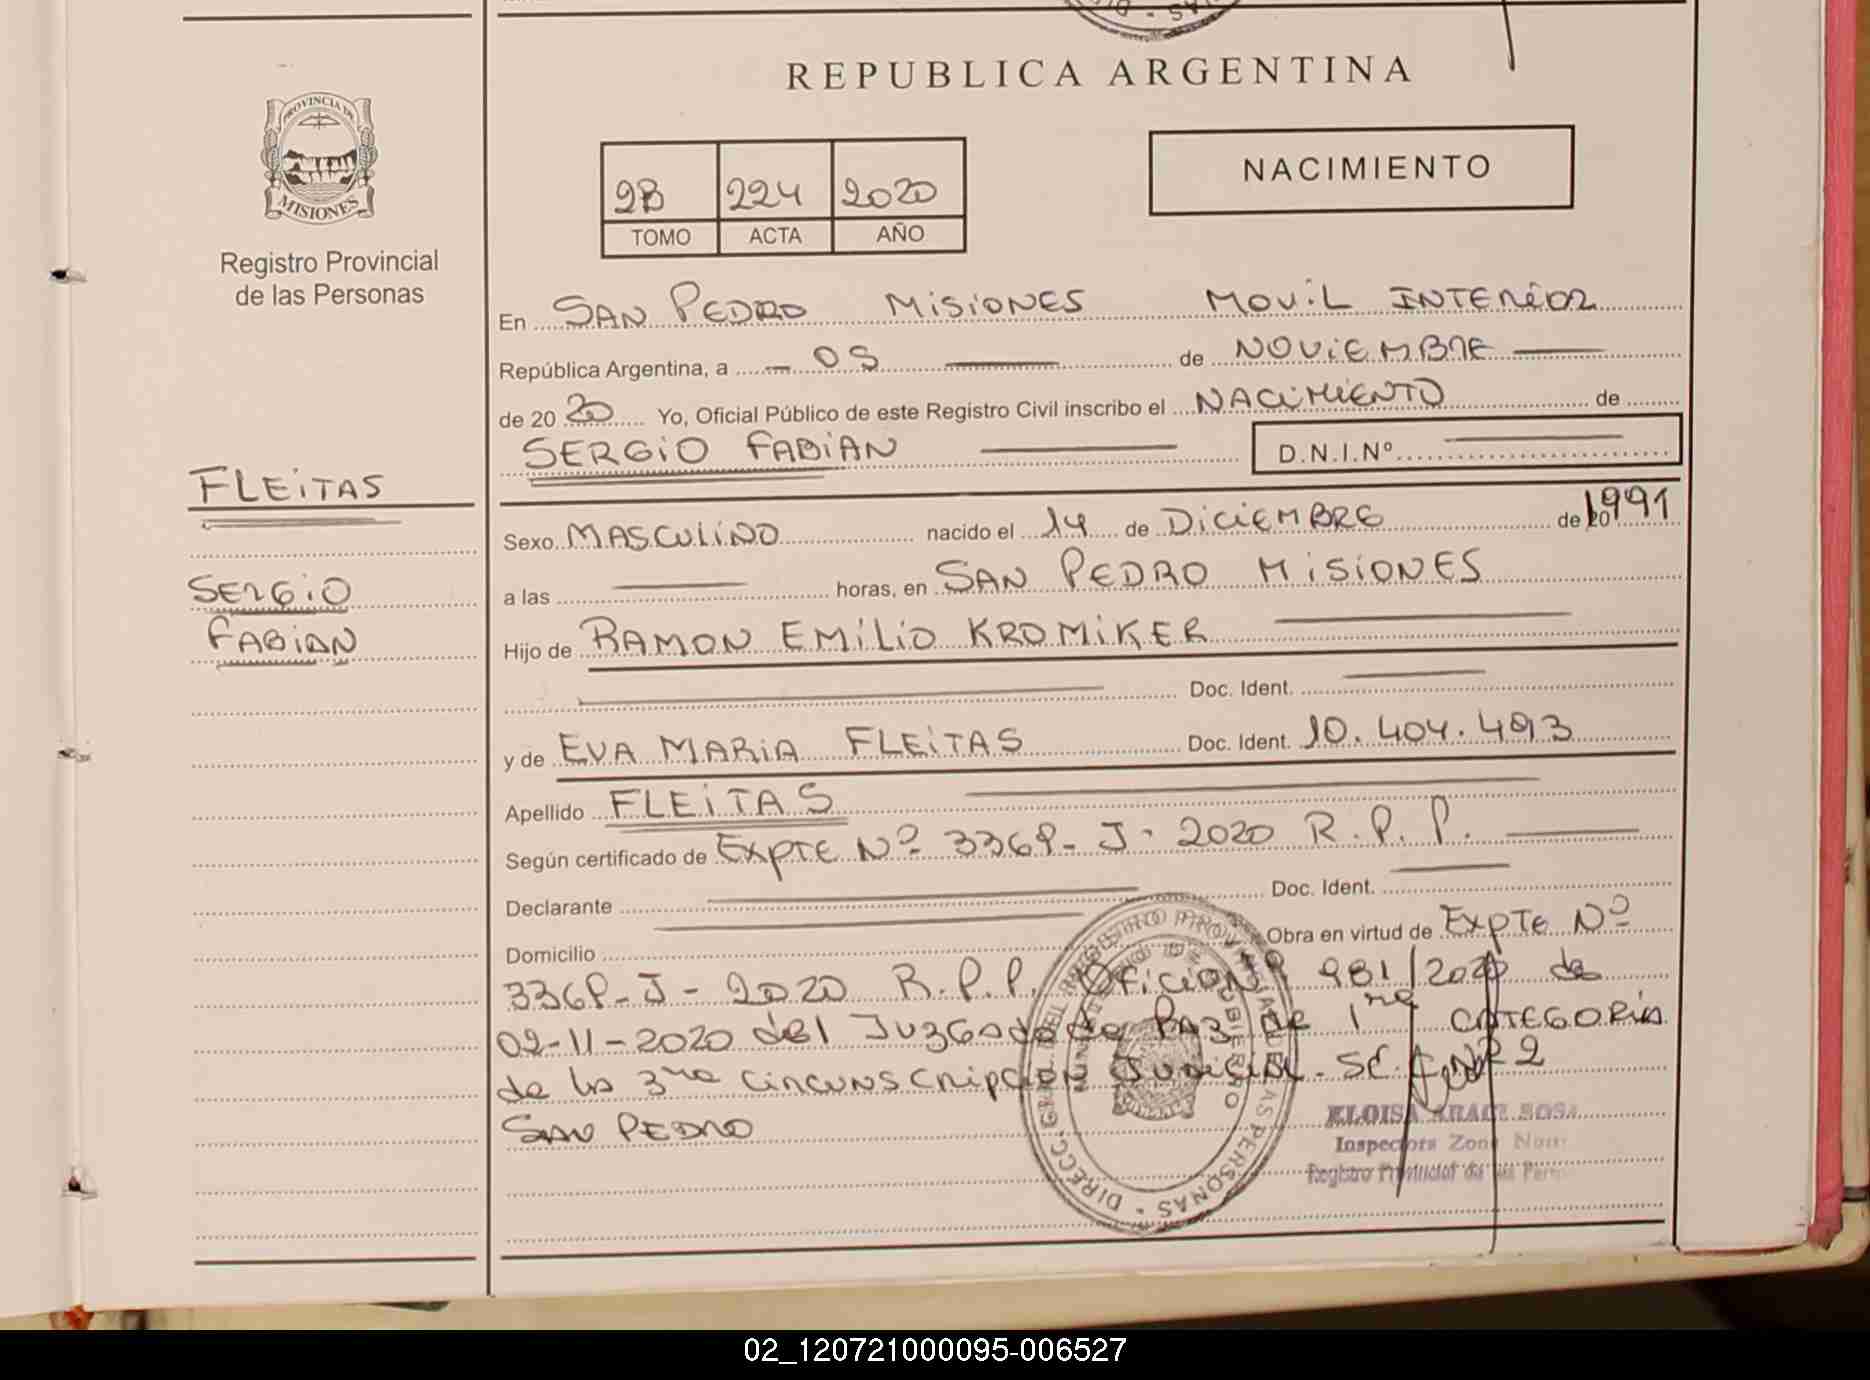 REPUBLICA ARGENTINA
PROVINCIA DE
MISIONES
Registro Provincial
de las Personas
NACIMIENTO
2B 224 2020
TOMO ACTA AÑO
En SAN PEDRO MISIONES MOVIL INTERIOR
República Argentina, a 05 de NOVIEMBRE
de 20 20 Yo, Oficial Público de este Registro Civil inscribo el NACIMIENTO de
SERGIO FABIAN D.N.I.Nº
FLEITAS
SERGIO
FABIAN
Sexo MASCULINO nacido el 14 de DICIEMBRE de 1991
a las horas, en SAN PEDRO MISIONES
Hijo de RAMON EMILIO KROMIKER
Doc. Ident.
y de EVA MARIA FLEITAS Doc. Ident. 10.404.493
Apellido FLEITAS
Según certificado de EXPTE Nº 3369-J-2020 R.P.P.
Declarante Doc. Ident.
Domicilio Obra en virtud de EXPTE Nº
3369-J-2020 R.P.P. Oficio Nº 981/2020 de
02-11-2020 del Juzgado de Paz de 1ra CATEGORIA
de la 3ra Circunscripcion Judicial -
SAN PEDRO
ELOISA ARACI SOSA
Inspectora Zona
Registro Provincial de las
DIRECC. GRAL. DEL REGISTRO PROVINCIAL DE LAS PERSONAS
MINISTERIO DE GOBIERNO
02_120721000095-006527